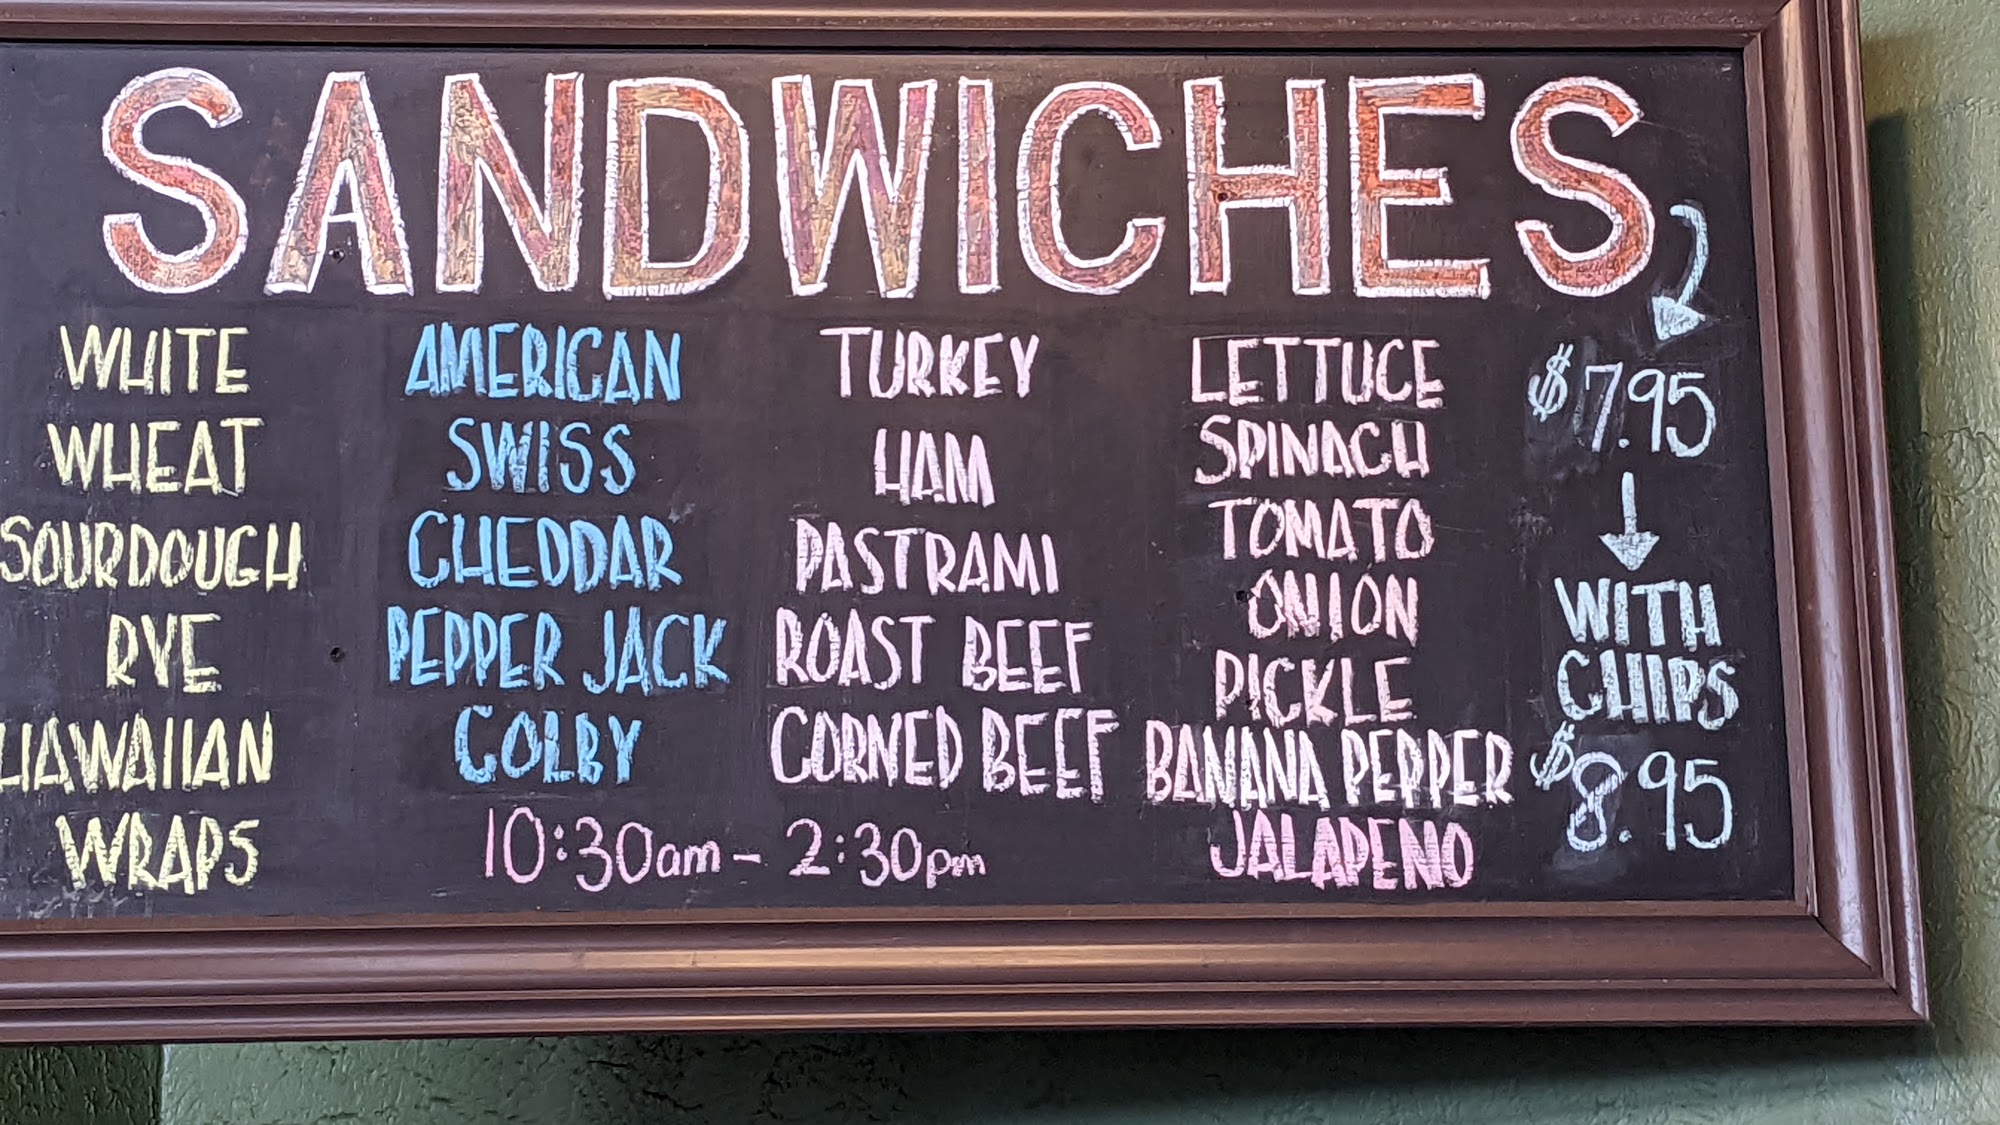 SANDWICHES
WHITE
WHEAT
SOURDOUGH
RYE
HAWAIIAN
WRAPS
AMERICAN
SWISS
CHEDDAR
PEPPER JACK
COLBY
TURKEY
HAM
PASTRAMI
ROAST BEEF
CORNED BEEF
10:30am - 2:30pm
LETTUCE
SPINACH
TOMATO
ONION
PICKLE
BANANA PEPPER
JALAPENO
$7.95
WITH
CHIPS
$8.95